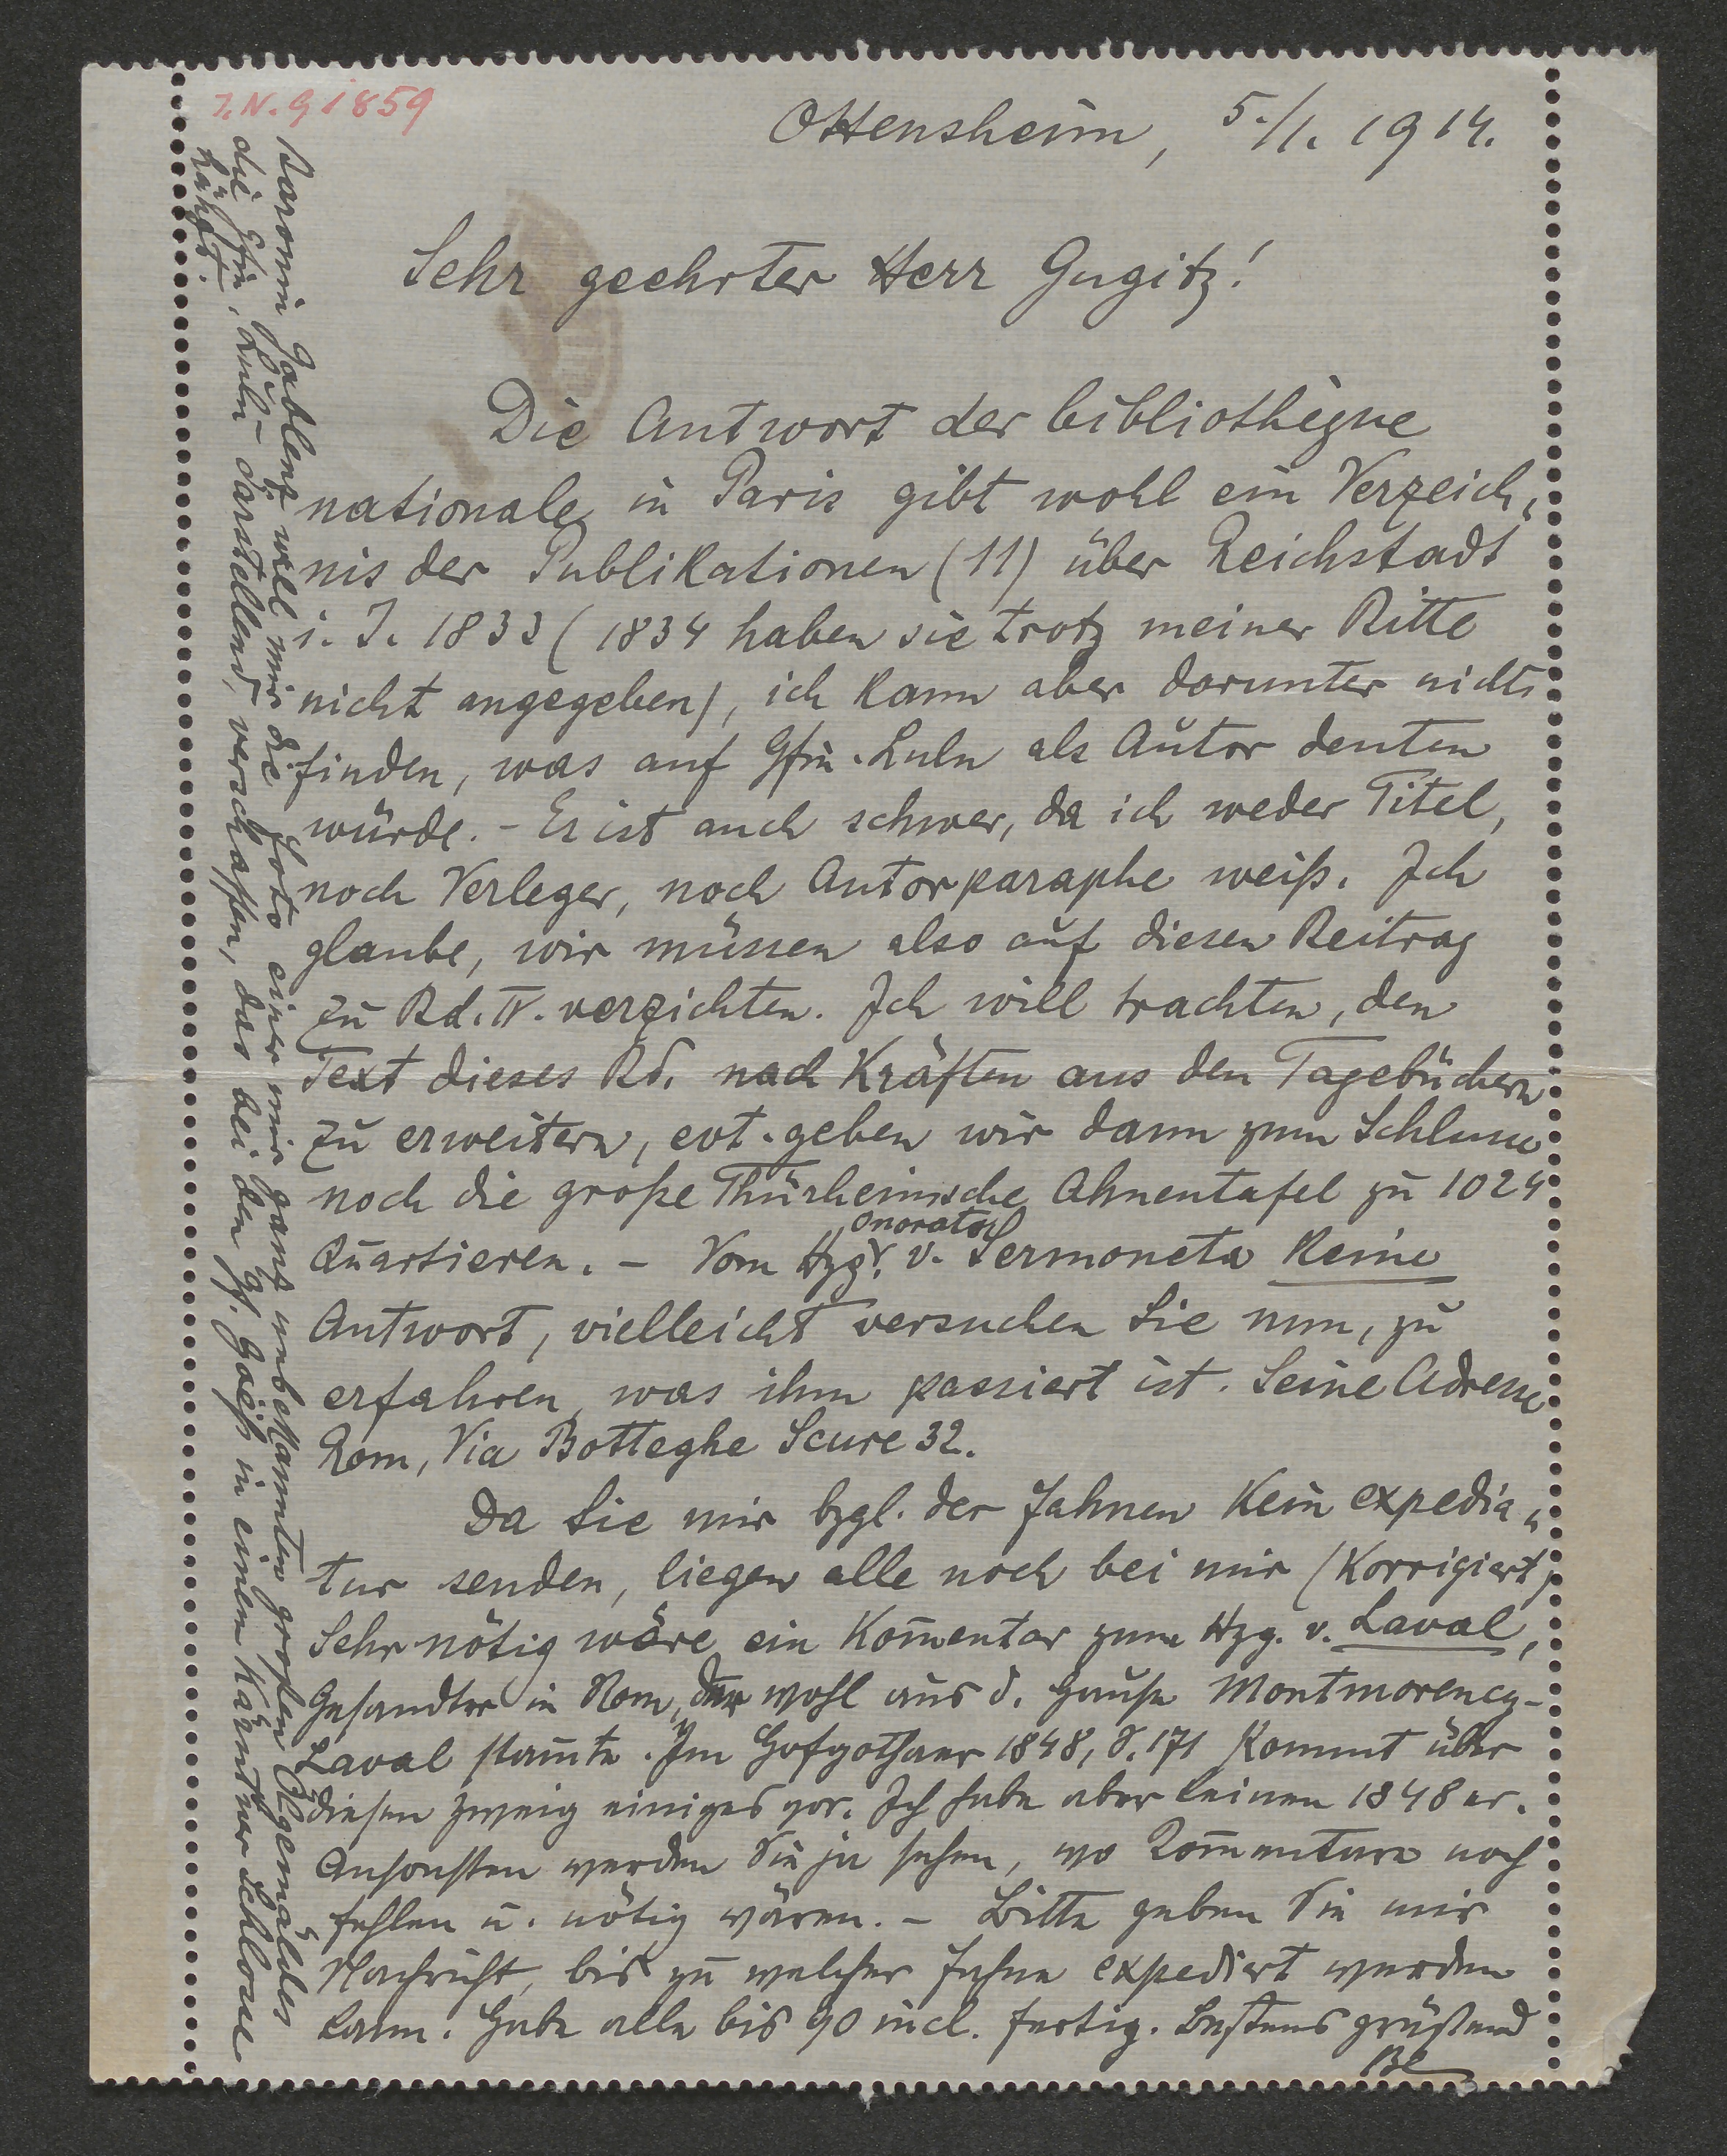 I.N. 91859
Ottensheim, 5./1. 1914.
Sehr geehrter Herr Gugitz!
Die Antwort der bibliothèque
nationale in Paris gibt wohl ein Verzeich„
nis der Publikationen (11) über Reichstadt
i. J. 1833 (1834 haben sie trotz meiner Bitte
nicht angegeben), ich kann aber darunter nichts
finden, was auf Gfin. Lulu als Autor deuten
würde. - Es ist auch schwer, da ich weder Titel,
noch Verleger, noch Autorparaphe weiß. Ich
glaube, wir müssen also auf diesen Beitrag
zu Bd. IV. verzichten. Ich will trachten, den
Text dieses Bd. nach Kräften aus den Tagebüchern
zu erweitern, evt. geben wir dann zum Schlusse
noch die große Thürheimische Ahnentafel zu 1024
Quartieren. - Vom Hzg. v. Sermoneta keine
Antwort, vielleicht versuchen Sie nun, zu
erfahren, was ihm passiert ist. Seine Adresse
Rom, Via Botteghe Scure 32.
Da Sie mir bzgl. der Fahnen kein expedia„
tur senden, liegen alle noch bei mir (korrigiert)
Sehr nötig wäre ein Kom̄entar zum Hzg. v. Laval,
Gesandter in Rom, der wohl aus d. Hause Montmorency-
Laval stam̄te. Im Hofgothaer 1848, S. 171 kommt über
diesen Zweig einiges vor. Ich habe aber keinen 1848er.
Ansonsten werden Sie ja sehen, wo Kom̄entare noch
fehlen u. nötig wären. - Bitte geben Sie mir
Nachricht, bis zu welcher Fahne expediert werden
kann. Habe alle bis 90 incl. fertig. Bestens grüßend
Baronin Gablenz will mir die Foto einer mir ganz unbekannten großen Ölgemäldes
die Gfin. Lulu darstellend, verschaffen, das bei den Gf. Goëß in einem Kärntner Schlosse
hängt.